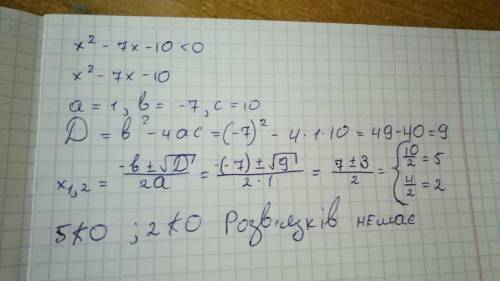 x² - 7x - 10 < 0
x² - 7x - 10
a = 1, b = -7, c = 10
D = b² - 4ac = (-7)² - 4·1·10 = 49 - 40 = 9
x₁,₂ = (-b ± √D)/(2a) = (-(-7) ± √9)/(2·1) = (7 ± 3)/2 = { 10/2 = 5 4/2 = 2
5≮0 ; 2≮0 Розв'язків немає